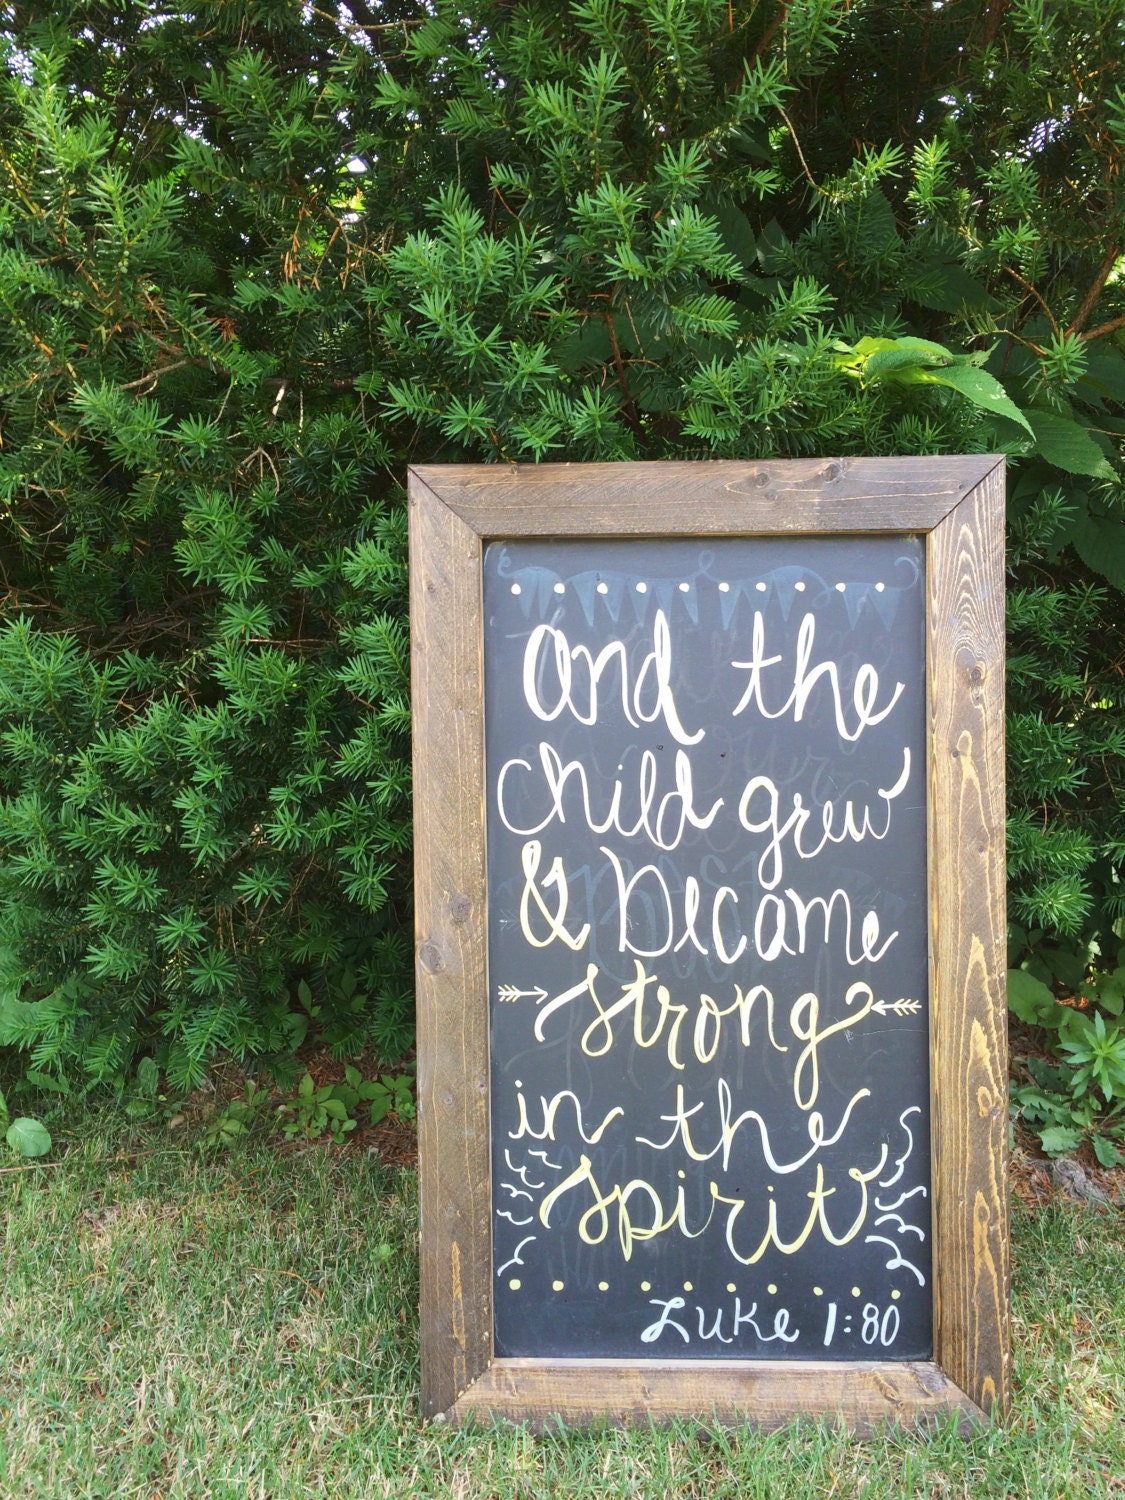 and the
child grew
& became
strong
in the
spirit
Luke 1:80